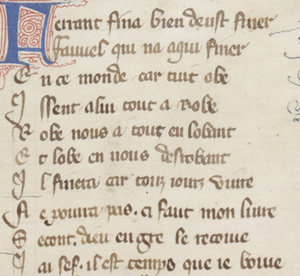 Ferrant fina bien deust finer
Fauuel qui na a qui finer
En ce monde car tuit obe
Issent a lui tout a robe
Robe nous a tout en lobant
Et lobe en nous desrobant
Il finera car touz iours viure
Ne pourra pas. ci faut mon liure
Second. dieu en gre le recoiue
Iai sef. il est temps que ie boiue